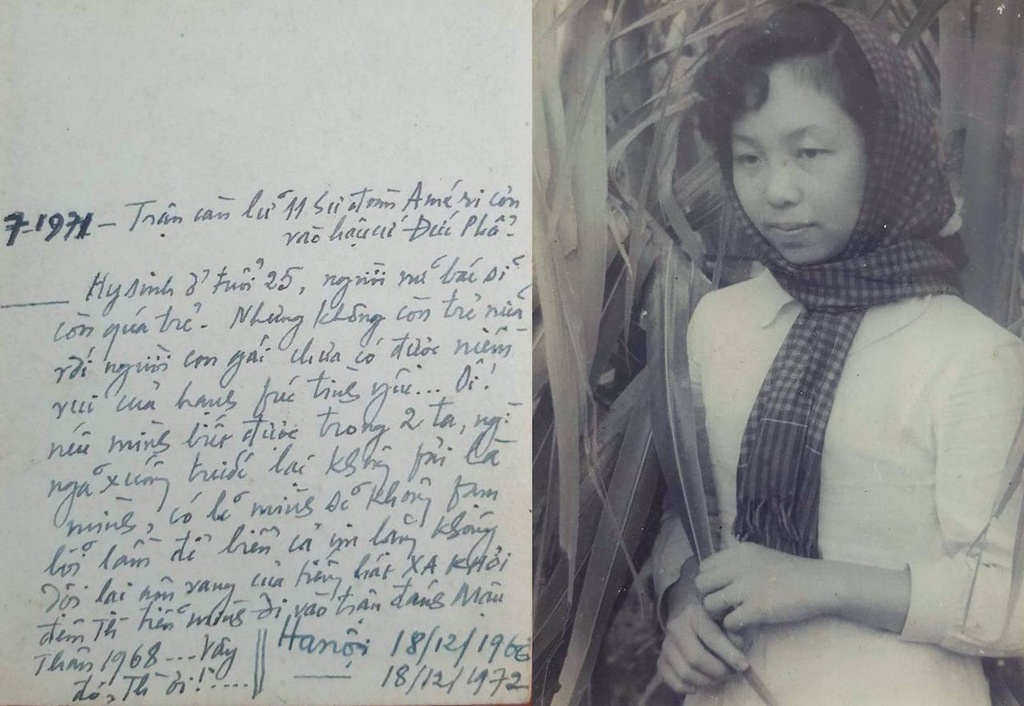 7-1971 - Trận càn lữ 11 Sư đoàn Améri còn
vào hậu cứ Đức Phổ.
Hy sinh ở tuổi 25, người nữ bác sĩ
còn quá trẻ. Nhưng không còn trẻ nữa
với người con gái chưa có được niềm
vui của hạnh fúc tình yêu... Ôi!
nếu mình biết được trong 2 ta, ng:
ngã xuống trước lại không fải là
mình, có lẽ mình sẽ không fạm
lỗi lầm để biển cả im lặng không
dội lại âm vang của tiếng hát XA KHƠI
đêm Th tiễn mình đi vào trận đánh Mậu
Thân 1968.... Vậy
đó, Th ơi!....
Hanội 18/12/1966
18/12/1972